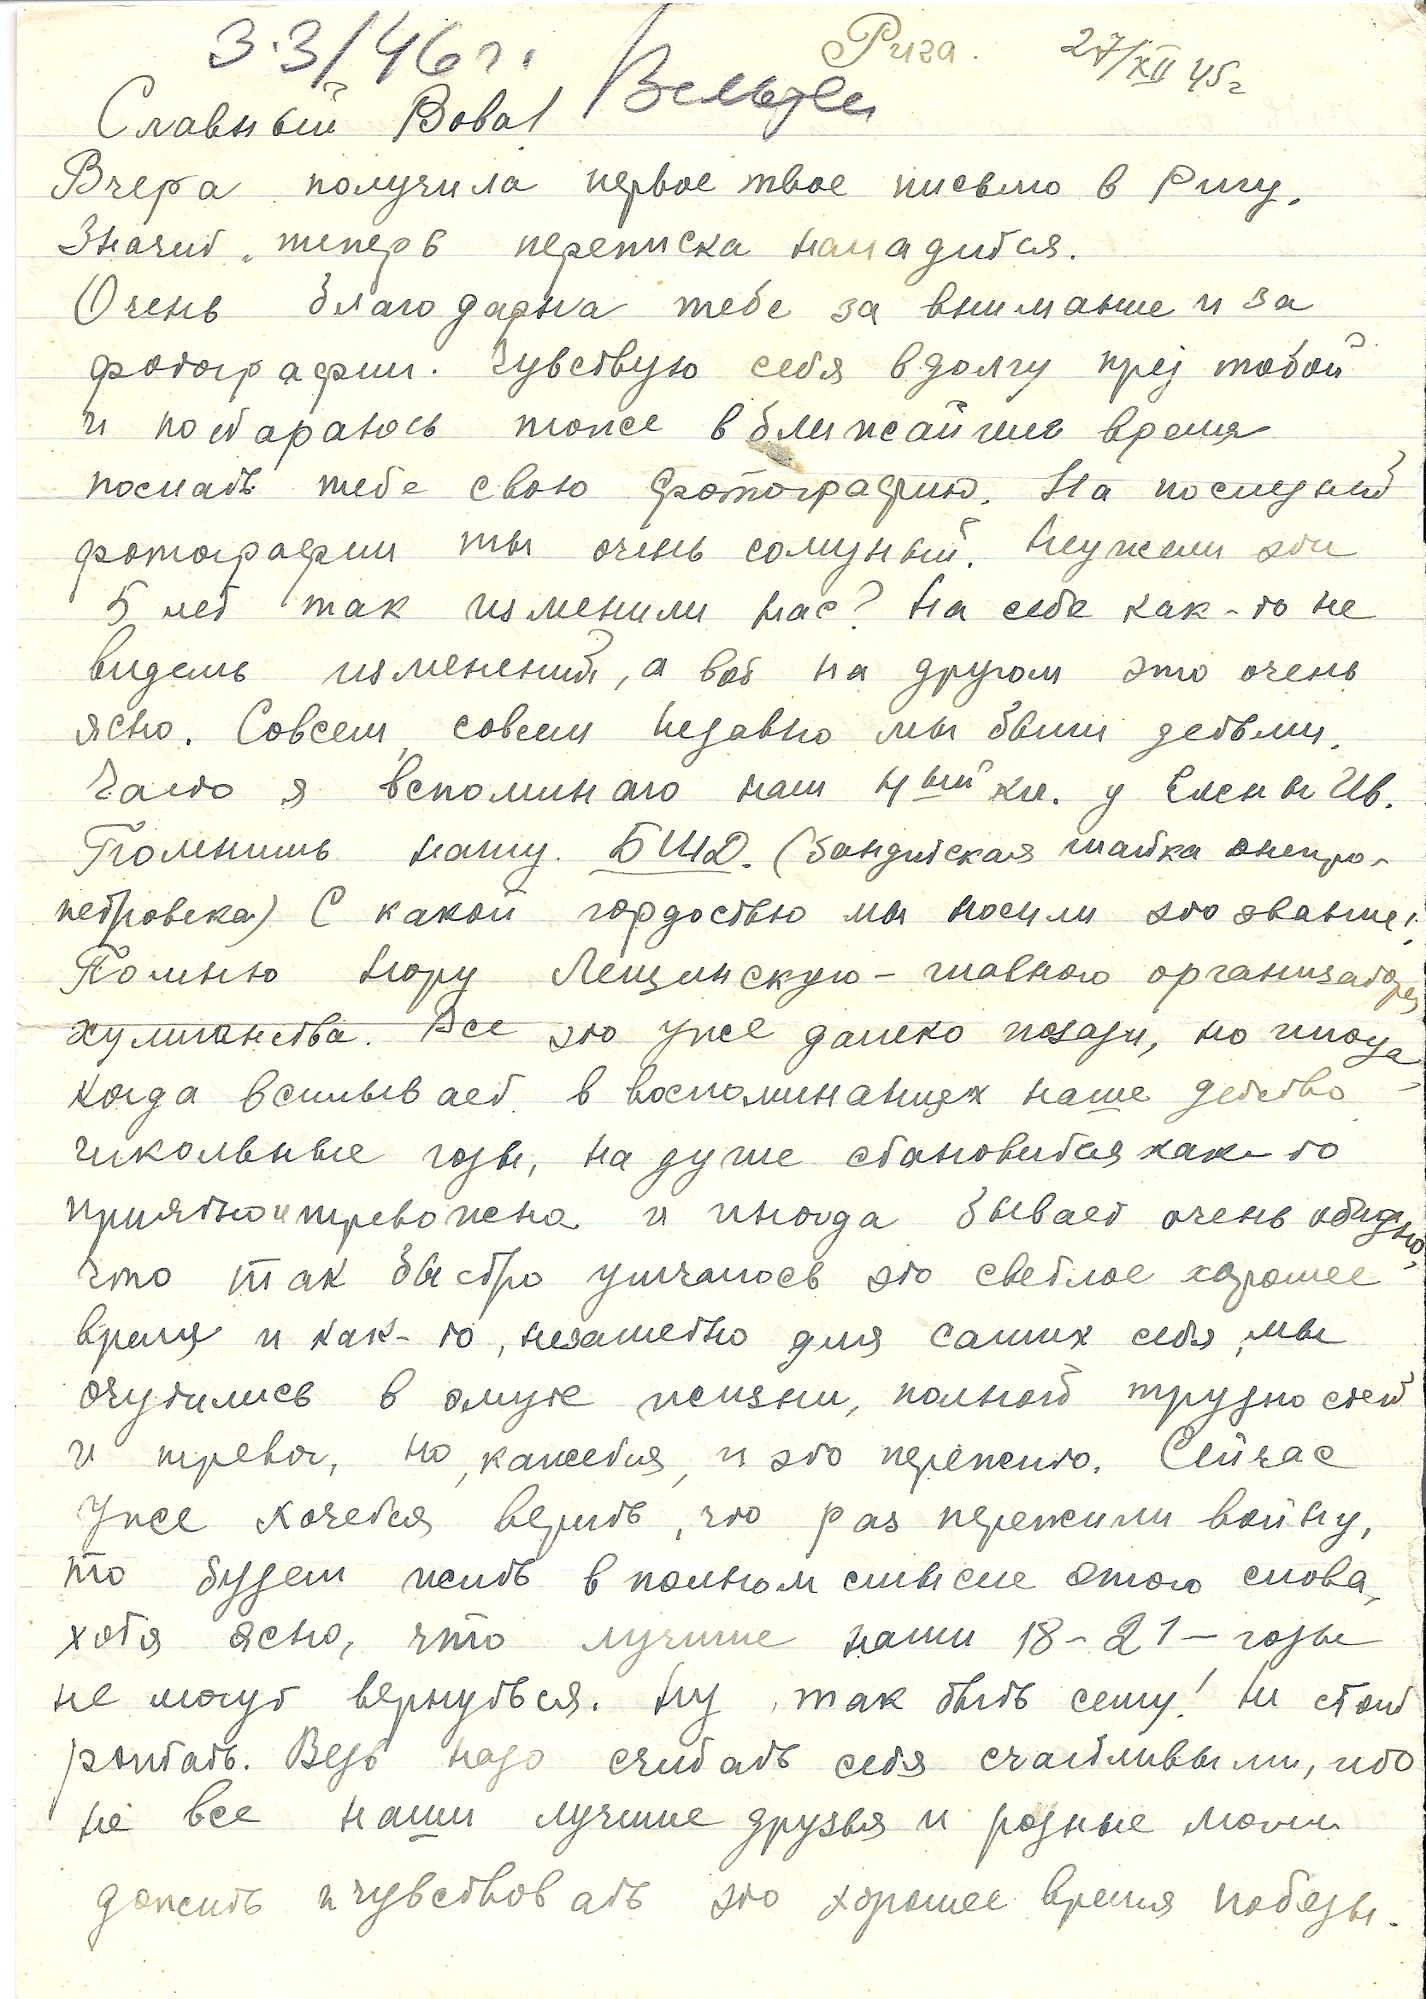 3.3/46 г.
Рига. 27/XII 45 г
Славный Вова!
Вчера получила первое твое письмо в Ригу.
Значит, теперь переписка наладится.
Очень благодарна тебе за внимание и за
фотографии. Чувствую себя в долгу пред тобой
и постараюсь тоже в ближайшие время
послать тебе свою фотографию. На последней
фотографии ты очень солидный. Неужели эти
5 лет так изменили нас? На себе как-то не
видешь изменений, а вот на другом это очень
ясно. Совсем, совсем недавно мы были детьми.
Часто я вспоминаю наш 4ый кл. у Елены Ив.
Помнишь нашу БШД. (бандитская шайка днепро-
петровска) С какой гордостью мы носили это звание!
Помню Нюру Лещинскую – главного организатора
хулиганства. Все это уже далеко позади, но иногда
когда всплывает в воспоминаниях наше детство
школьные годы, на душе становится как-то
приятно и тревожно и иногда бывает очень обидно,
что так быстро умчалось это светлое хорошее
время и как-то, незаметно для самих себя, мы
очутились в омуте жизни, полной трудностей
и тревог, но, кажется, и это пережито. Сейчас
уже хочется верить, что раз пережили войну,
то будем жить в полном смысле этого слова,
хотя ясно, что лучшие наши 18–21 – годы
не могут вернуться. Ну, так быть сему! Не стоит
роптать. Ведь надо считать себя счастливыми, ибо
не все наши лучшие друзья и родные могли
дожить и чувствовать это хорошее время победы.